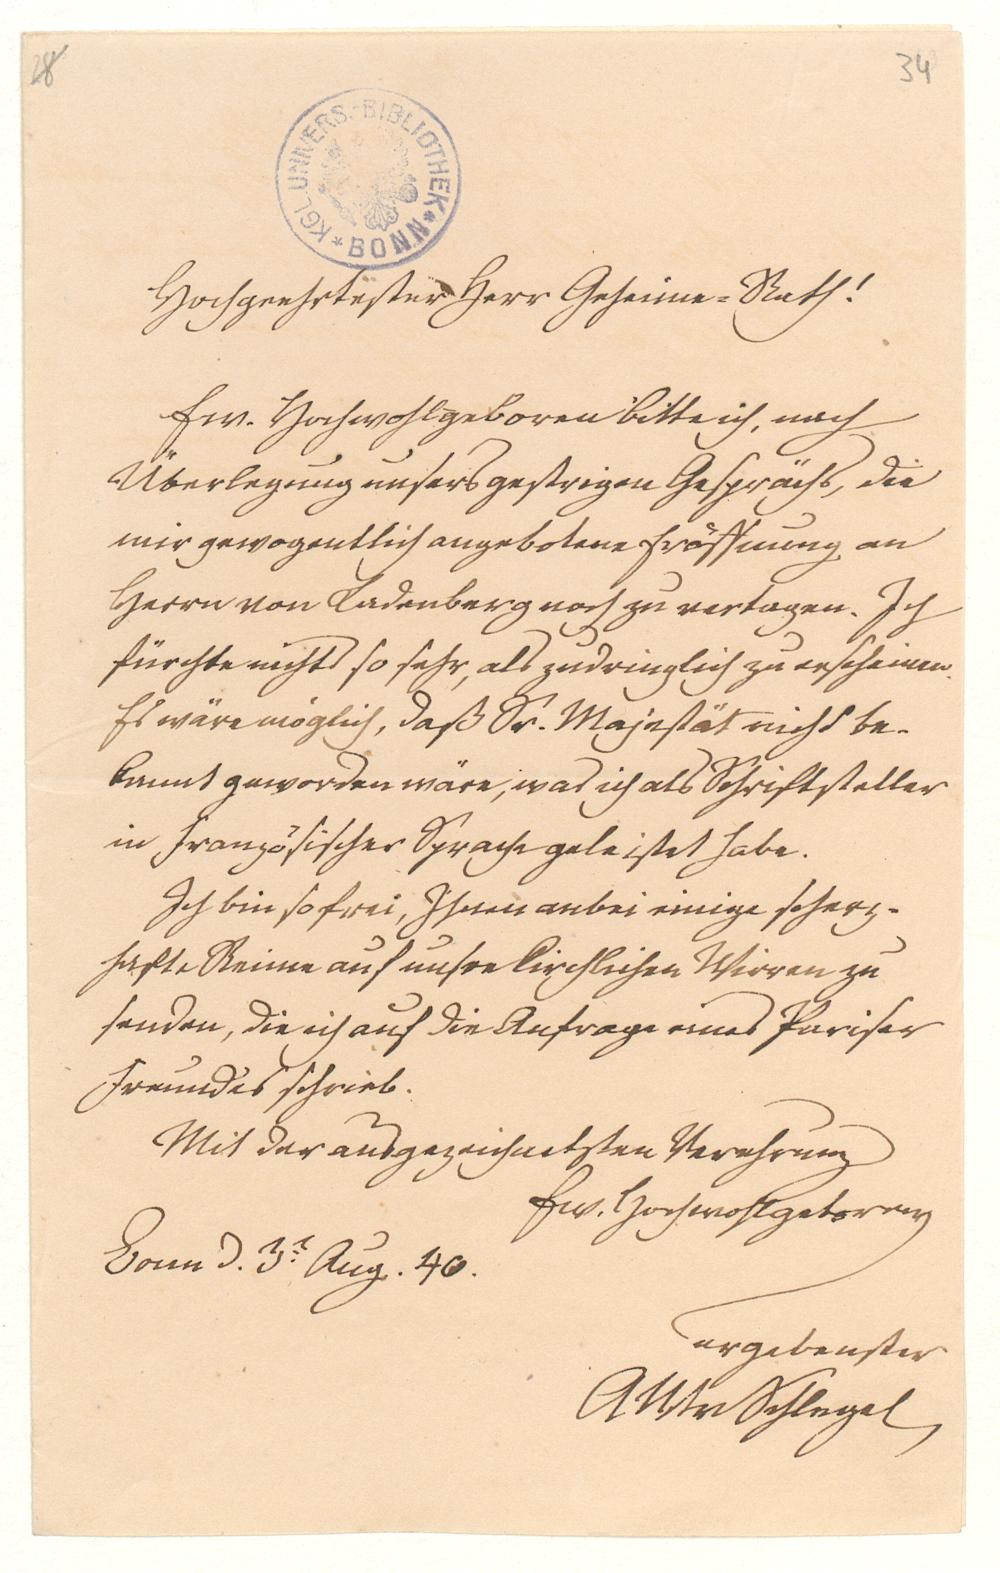 28
34
KGL. UNIVERS.-BIBLIOTHEK * BONN *
Hochgeehrtester Herr Geheime-Rath!
Ew. Hochwohlgeboren bitte ich, nach
Überlegung unsers gestrigen Gesprächs, die
mir gewogentlich angebotene Eröffnung an
Herrn von Ladenberg noch zu vertagen. Ich
fürchte nichts so sehr, als zudringlich zu erscheinen.
Es wäre möglich, daß Sr. Majestät nicht be-
kannt geworden wäre, was ich als Schriftsteller
in Französischer Sprache geleistet habe.
Ich bin so frei, Ihnen anbei einige scherz-
hafte Reime auf unsre kirchlichen Wirren zu
senden, die ich auf die Anfrage eines Pariser
Freundes schrieb.
Mit der ausgezeichnetsten Verehrung
Ew. Hochwohlgeboren
Bonn d. 3t Aug. 40.
ergebenster
AWv Schlegel